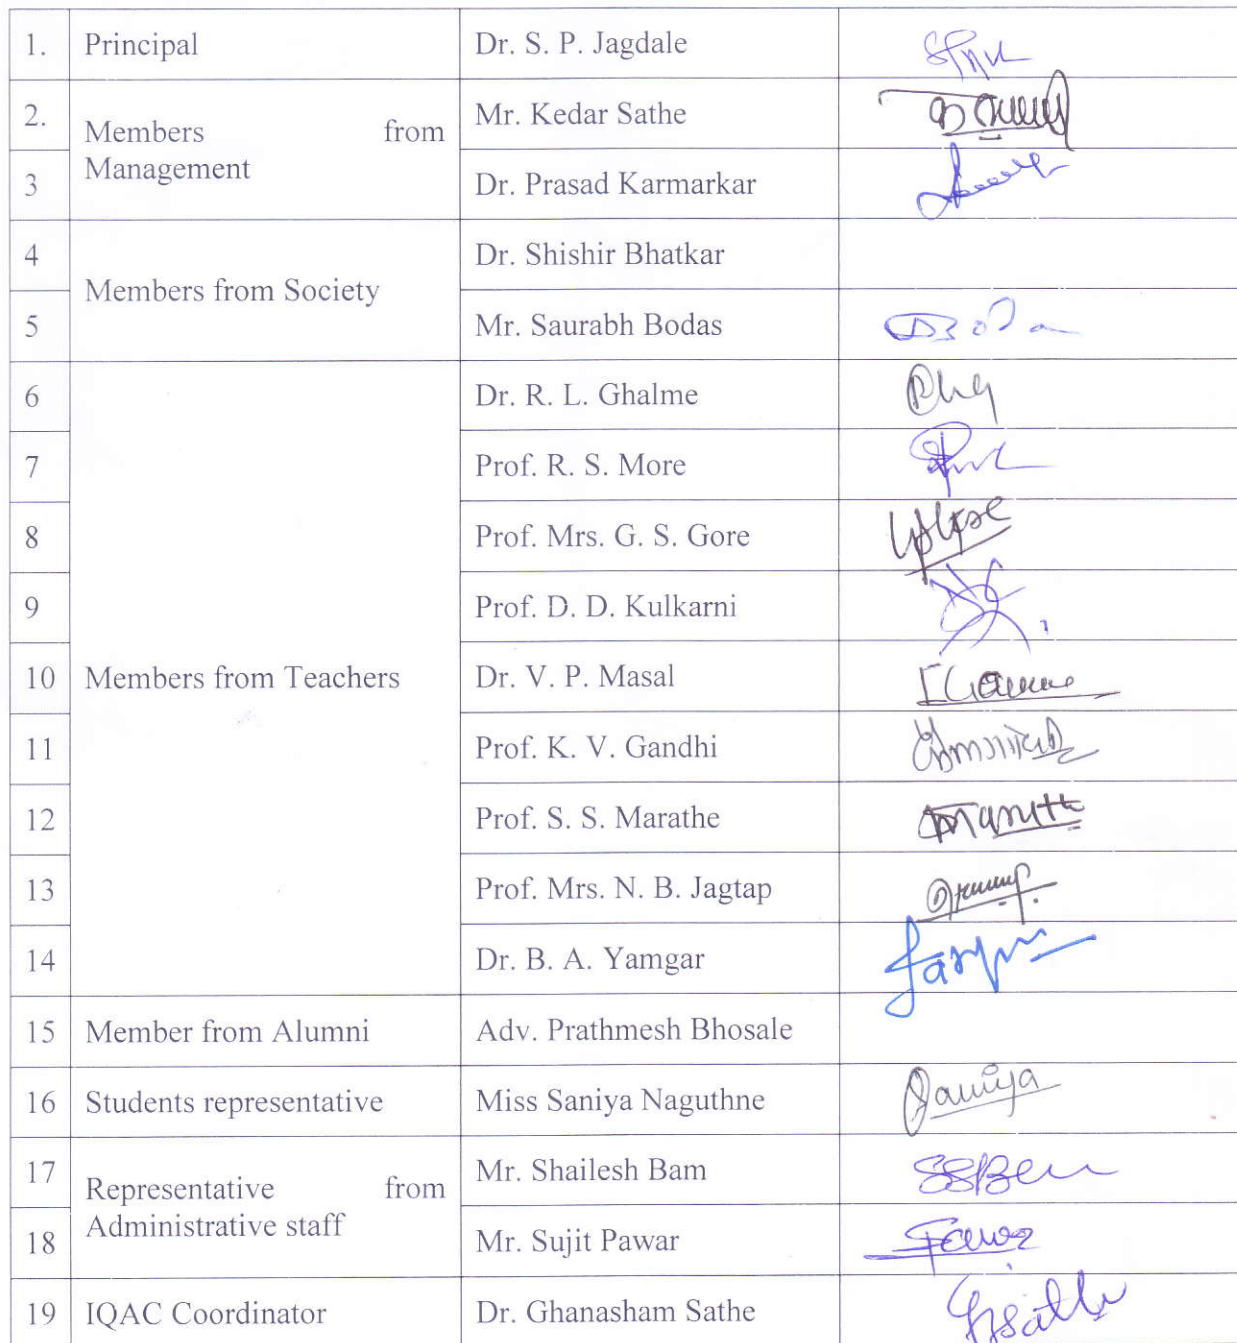 1. Principal Dr. S. P. Jagdale
2. Members from Mr. Kedar Sathe
3 Management Dr. Prasad Karmarkar
4 Members from Society Dr. Shishir Bhatkar
5 Mr. Saurabh Bodas
6 Dr. R. L. Ghalme
7 Prof. R. S. More
8 Prof. Mrs. G. S. Gore
9 Prof. D. D. Kulkarni
10 Members from Teachers Dr. V. P. Masal
11 Prof. K. V. Gandhi
12 Prof. S. S. Marathe
13 Prof. Mrs. N. B. Jagtap
14 Dr. B. A. Yamgar
15 Member from Alumni Adv. Prathmesh Bhosale
16 Students representative Miss Saniya Naguthne Saniya
17 Representative from Mr. Shailesh Bam
18 Administrative staff Mr. Sujit Pawar
19 IQAC Coordinator Dr. Ghanasham Sathe